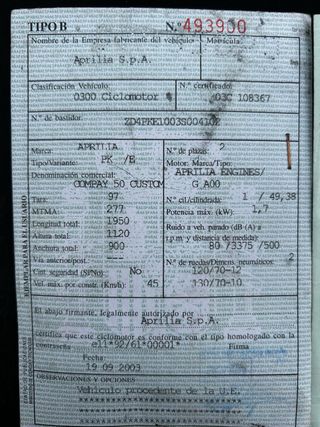 TIPO B N.º 493900
Nombre de la Empresa fabricante del vehículo Matrícula
Aprilia S.p.A.
Clasificación Vehículo: N.º certificado
0300 Ciclomotor 03C 108367
N.º de bastidor:
ZD4PKE1003S004102
Marca: APRILIA N.º de plazas: 2
Tipo/Variante: PK /E Motor: Marca/Tipo:
Denominación comercial: APRILIA ENGINES/
COMPAY 50 CUSTOM G A00
Tara: 97 N.º cil/cilindrada: 1 / 49,38
MTMA: 277 Potencia máx. (kW): 1,7
Longitud total: 1950 Ruido a veh. parado (dB A) a
Altura total: 1120 r.p.m. y distancia de medida:
Anchura total: 900 80 /3375 /500
Vía anterior/post: ---- N.º de ruedas/Dimens. neumáticos: 2
Cint. seguridad (SI/No): No 120/70-12
Vel. máx. por constr. (Km/h): 45 130/70-10
El abajo firmante, legalmente autorizado por
Aprilia S.p.A.
certifica que este ciclomotor es conforme con el tipo homologado con la
contraseña e11*92/61*00001* Firma
Fecha:
19 09 2003
OBSERVACIONES Y OPCIONES
Vehículo procedente de la U.E.
EJEMPLAR PARA EL USUARIO